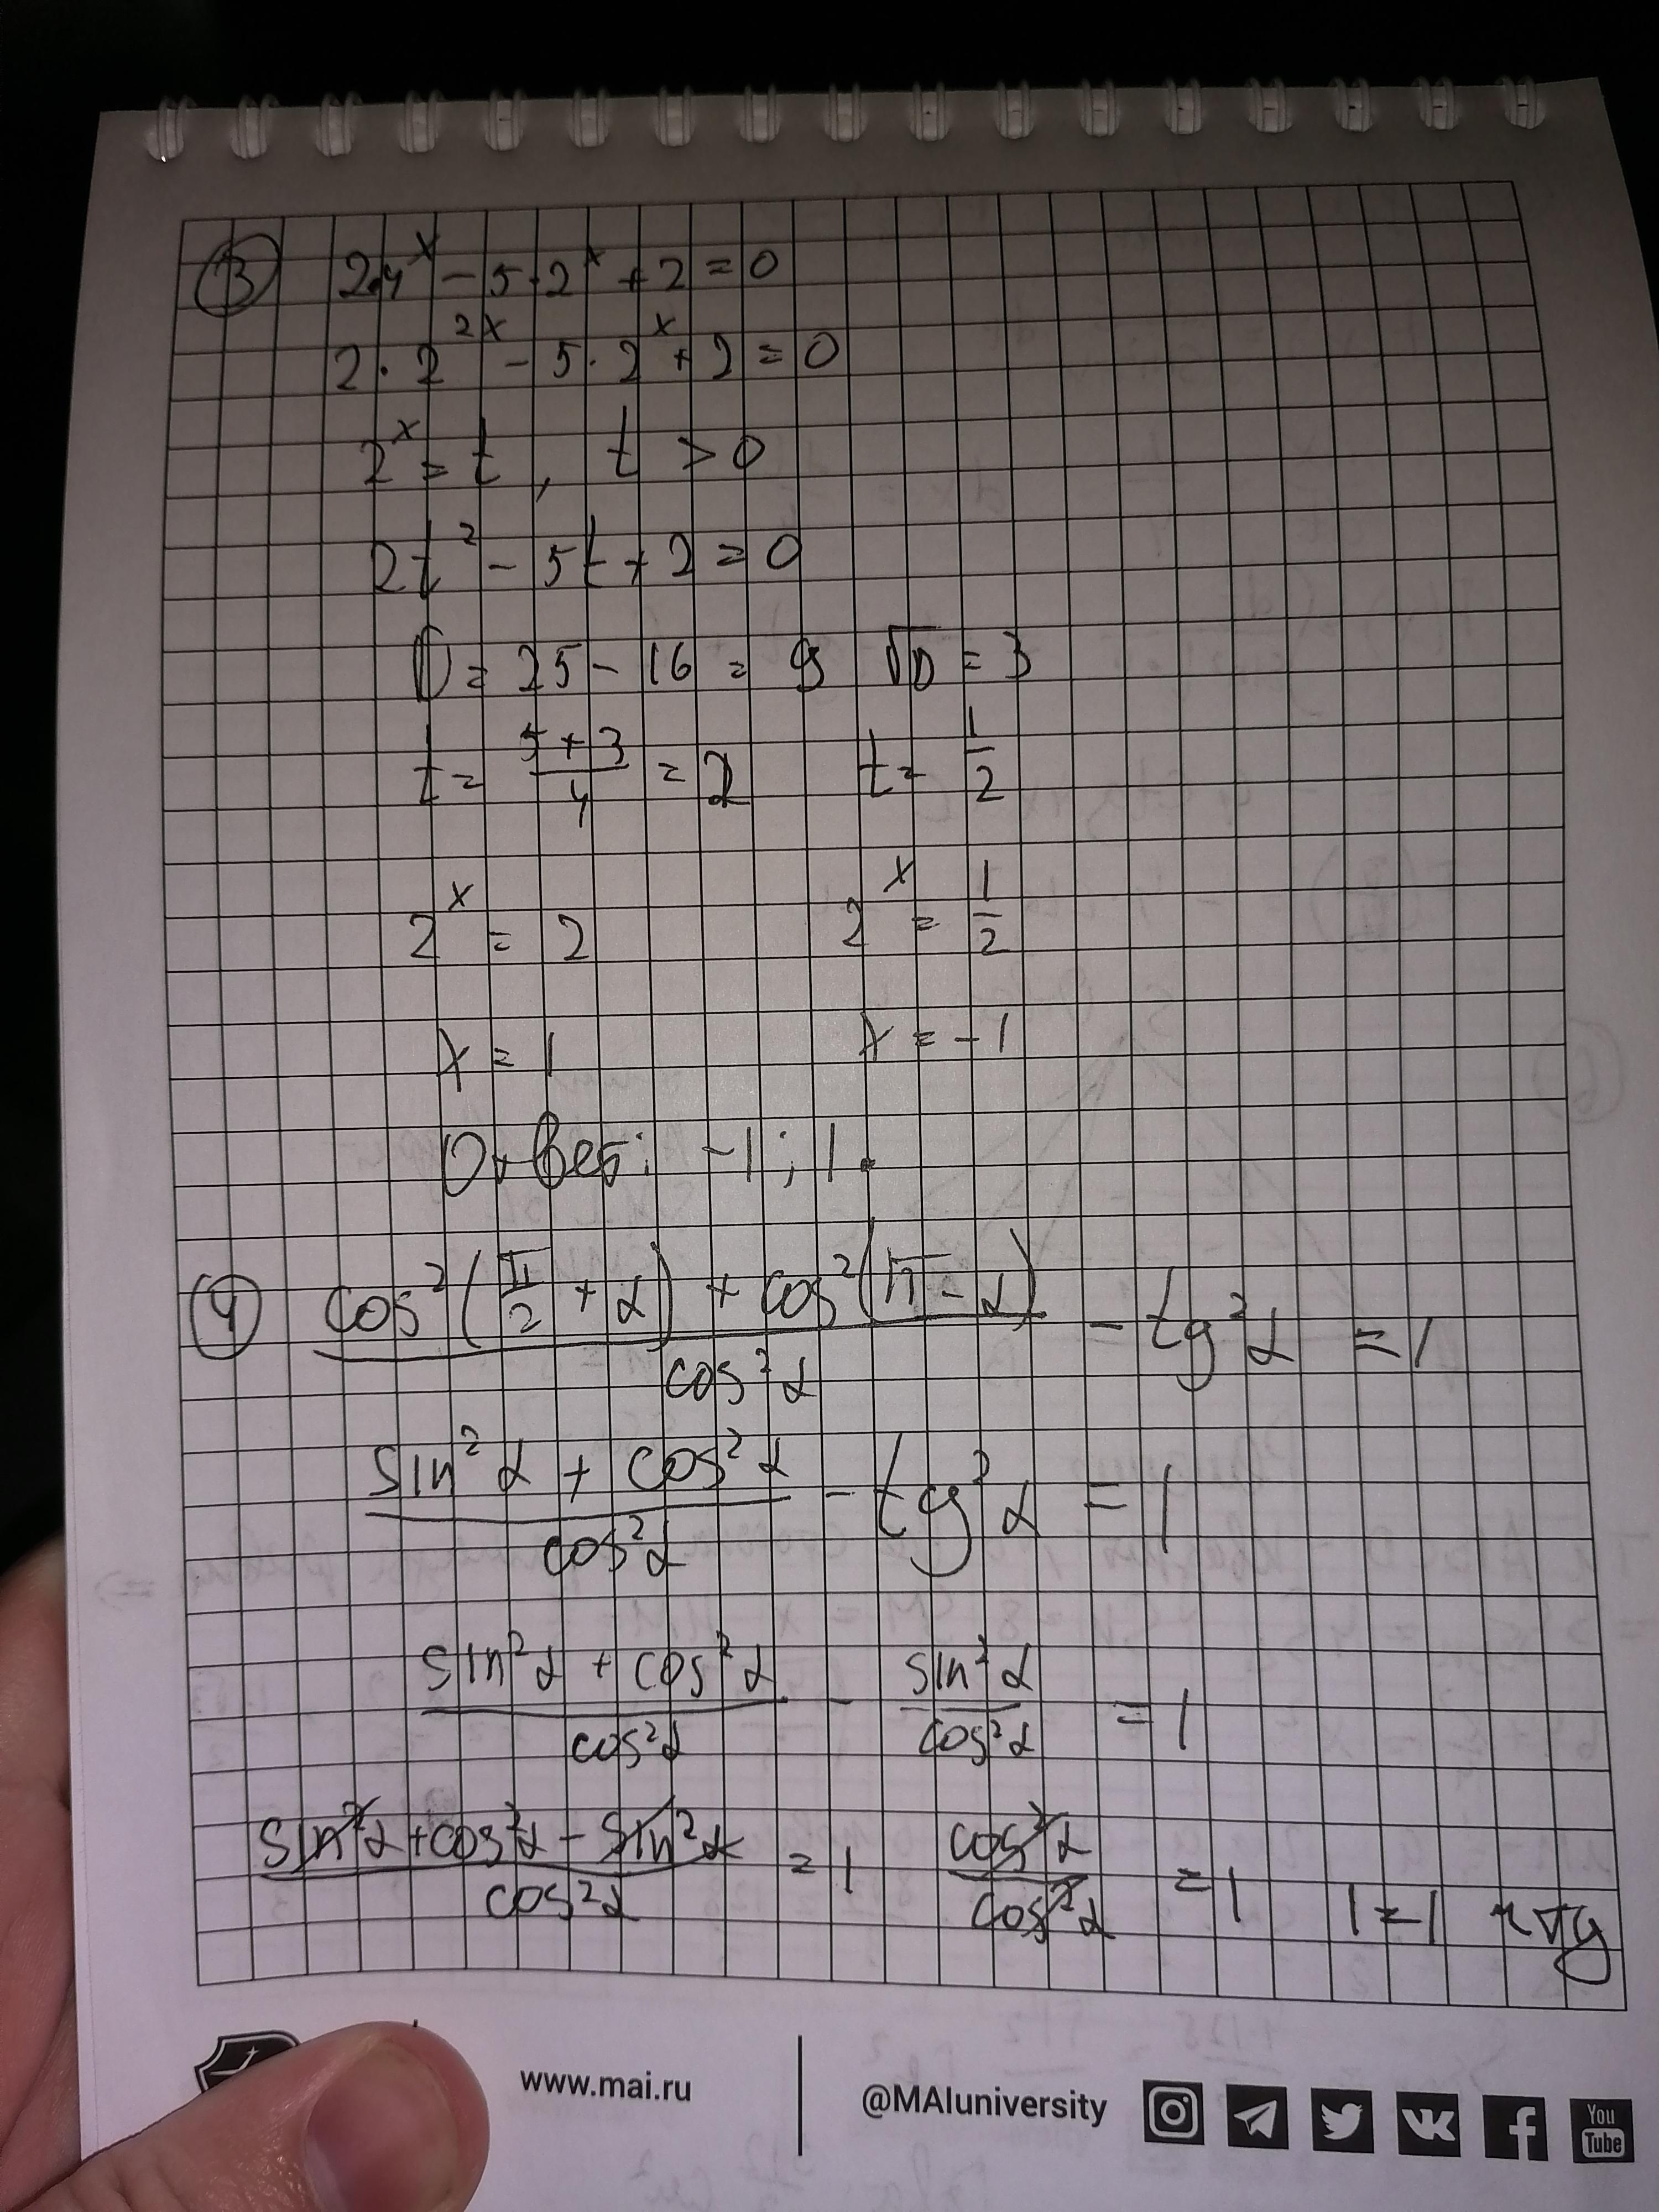 ③ 2·4^x - 5·2^x + 2 = 0
2·2^(2x) - 5·2^x + 2 = 0
2^x = t, t > 0
2t² - 5t + 2 = 0
D = 25 - 16 = 9 √D = 3
t = (5+3)/4 = 2 t = 1/2
2^x = 2 2^x = 1/2
x = 1 x = -1
Ответ: -1; 1.
④ (cos²(π/2 + α) + cos²(π - α))/cos²α - tg²α = 1
(sin²α + cos²α)/cos²α - tg²α = 1
(sin²α + cos²α)/cos²α - sin²α/cos²α = 1
(sin²α + cos²α - sin²α)/cos²α = 1 cos²α/cos²α = 1 1 = 1 чтд
www.mai.ru
@MAIuniversity
You
Tube